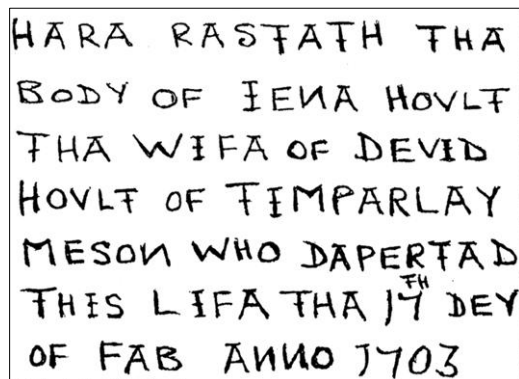 HARA RASTATH THA
BODY OF IENA HOVLT
THA WIFA OF DEVID
HOVLT OF TIMPARLAY
MESON WHO DAPERTAD
THIS LIFA THA 17TH DEY
OF FAB ANNO 1703